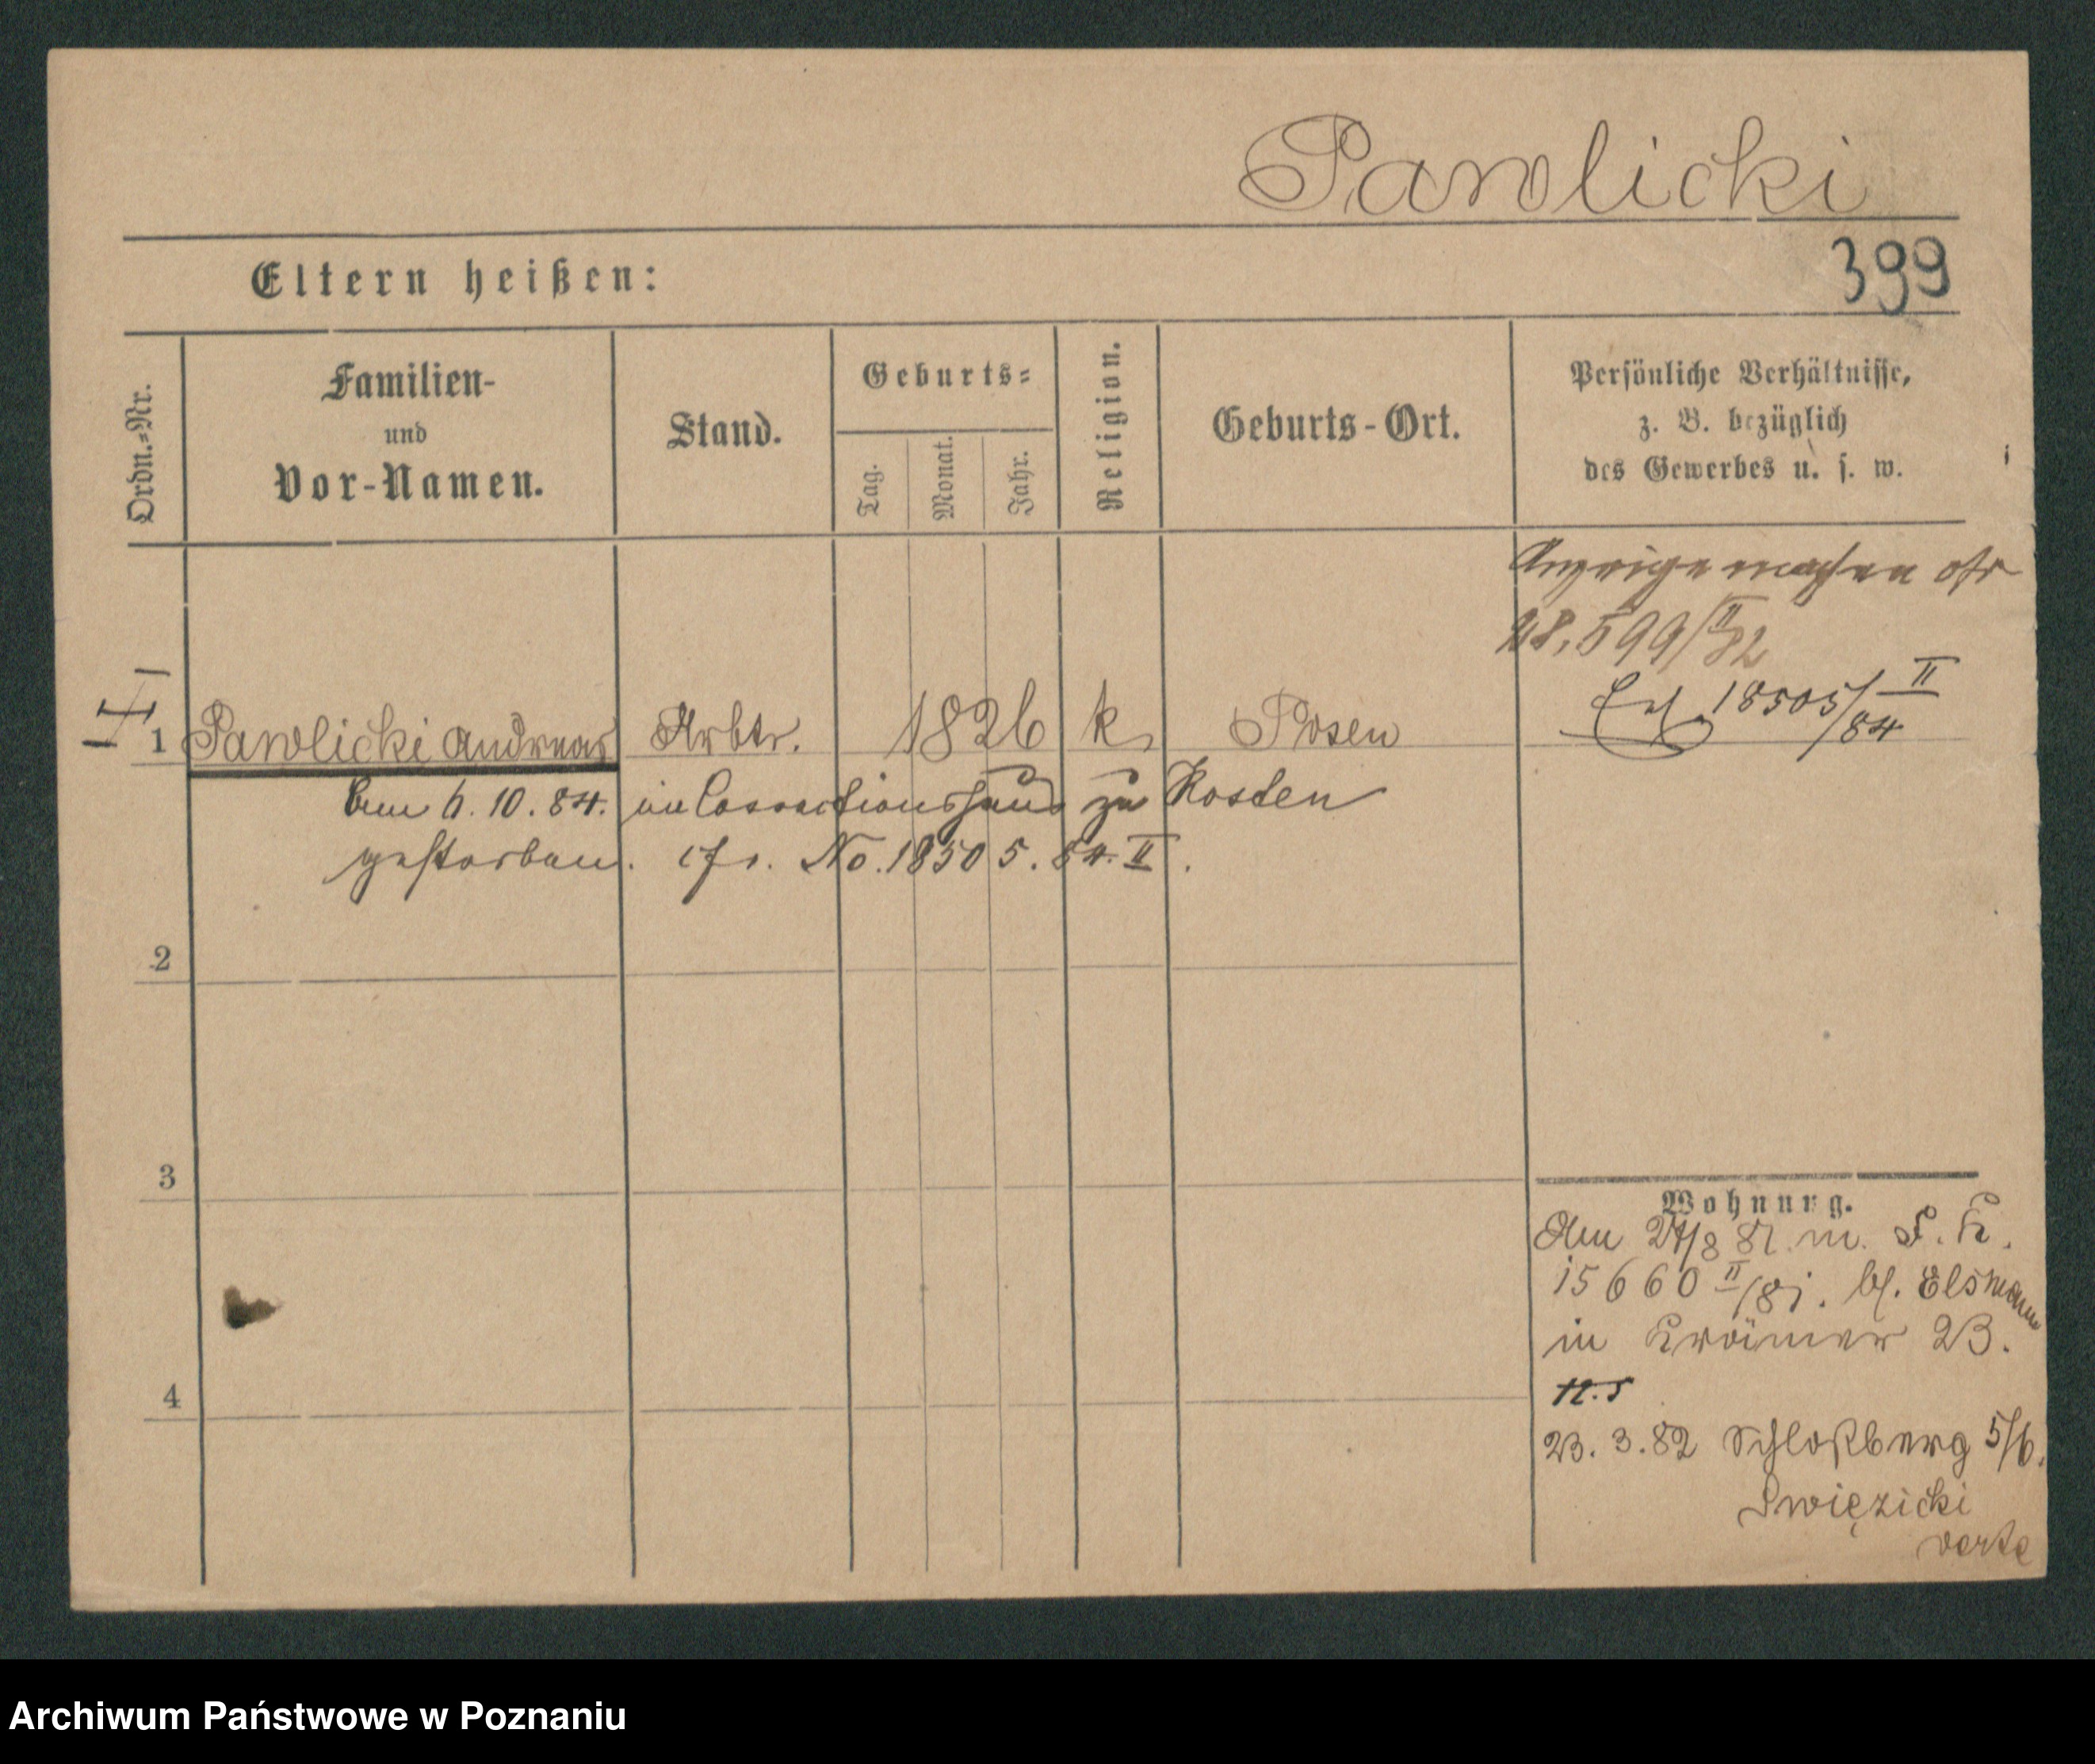 Pawlicki
Eltern heißen:
399
Ordn.=Nr.
Familien-
und
Vor-Namen.
Stand.
Geburts=
Tag.
Monat.
Jahr.
Religion.
Geburts-Ort.
Persönliche Verhältnisse,
z. B. bezüglich
des Gewerbes u. s. w.
Anzeige machen cfr
28,599/II 82
1 Pawlicki Andreas Arbtr. 1826 k. Posen
18505/II 84
6. 10. 84. im Correctionshaus zu Kosten
gestorben. cfr. No. 18505. 84. II.
2
3
4
Wohnung.
Am 24/8 81. m.
15660 II/81. bf. Elsmann
in Krämer 23.
12.5
23. 3. 82 Schloßberg 5/6.
Swięzicki
verte
Archiwum Państwowe w Poznaniu